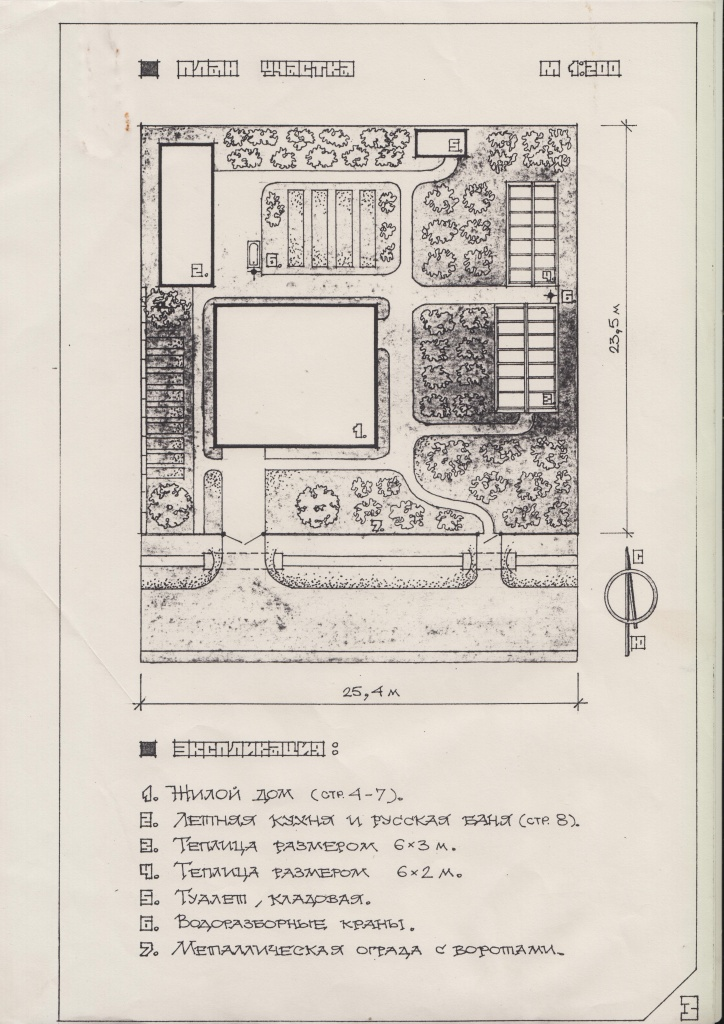 ПЛАН УЧАСТКА М 1:200
5.
2.
6.
4.
6.
3.
1.
7.
23,5 м
25,4 м
ЭКСПЛИКАЦИЯ:
1. ЖИЛОЙ ДОМ (СТР. 4-7).
2. ЛЕТНЯЯ КУХНЯ И РУССКАЯ БАНЯ (СТР. 8).
3. ТЕПЛИЦА РАЗМЕРОМ 6×3 М.
4. ТЕПЛИЦА РАЗМЕРОМ 6×2 М.
5. ТУАЛЕТ, КЛАДОВАЯ.
6. ВОДОРАЗБОРНЫЕ КРАНЫ.
7. МЕТАЛЛИЧЕСКАЯ ОГРАДА С ВОРОТАМИ.